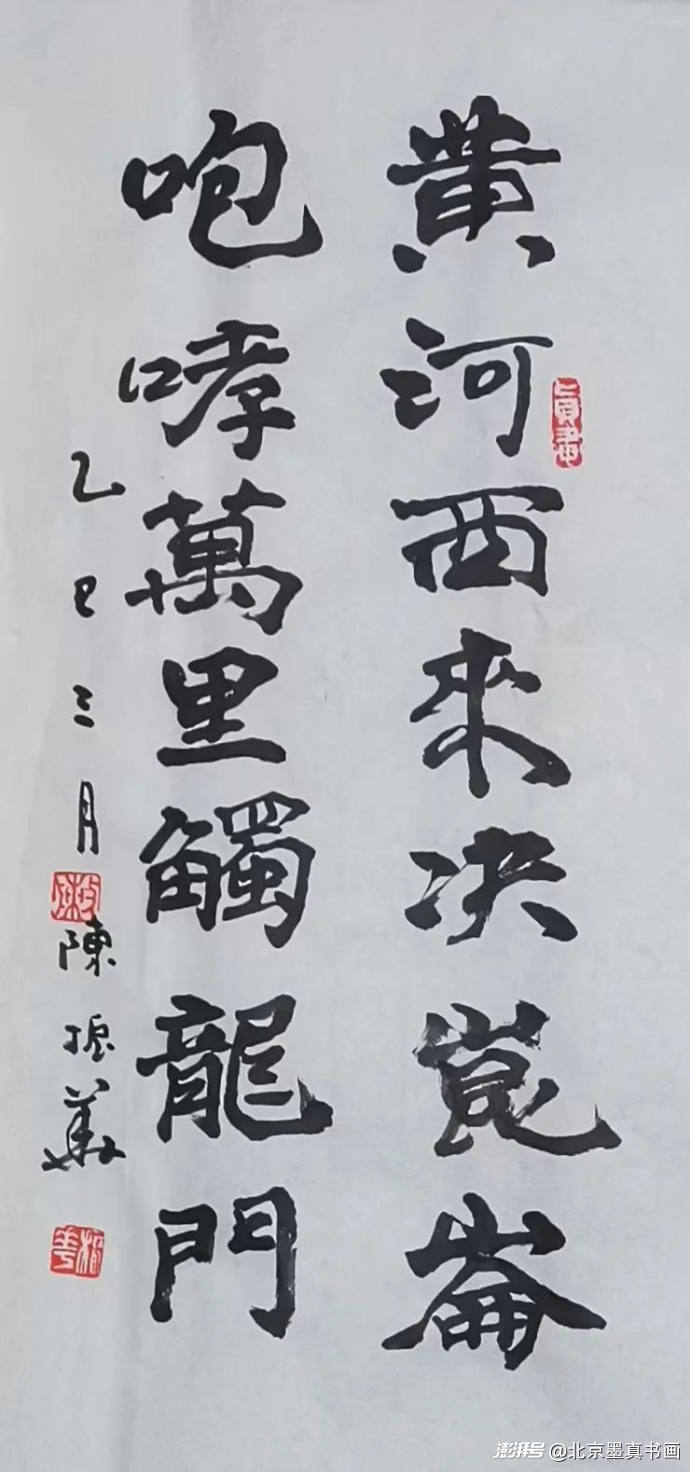 黄河西來决崑崙
咆哮萬里觸龍門
乙巳三月
陳振美
澎湃号@北京墨真书画